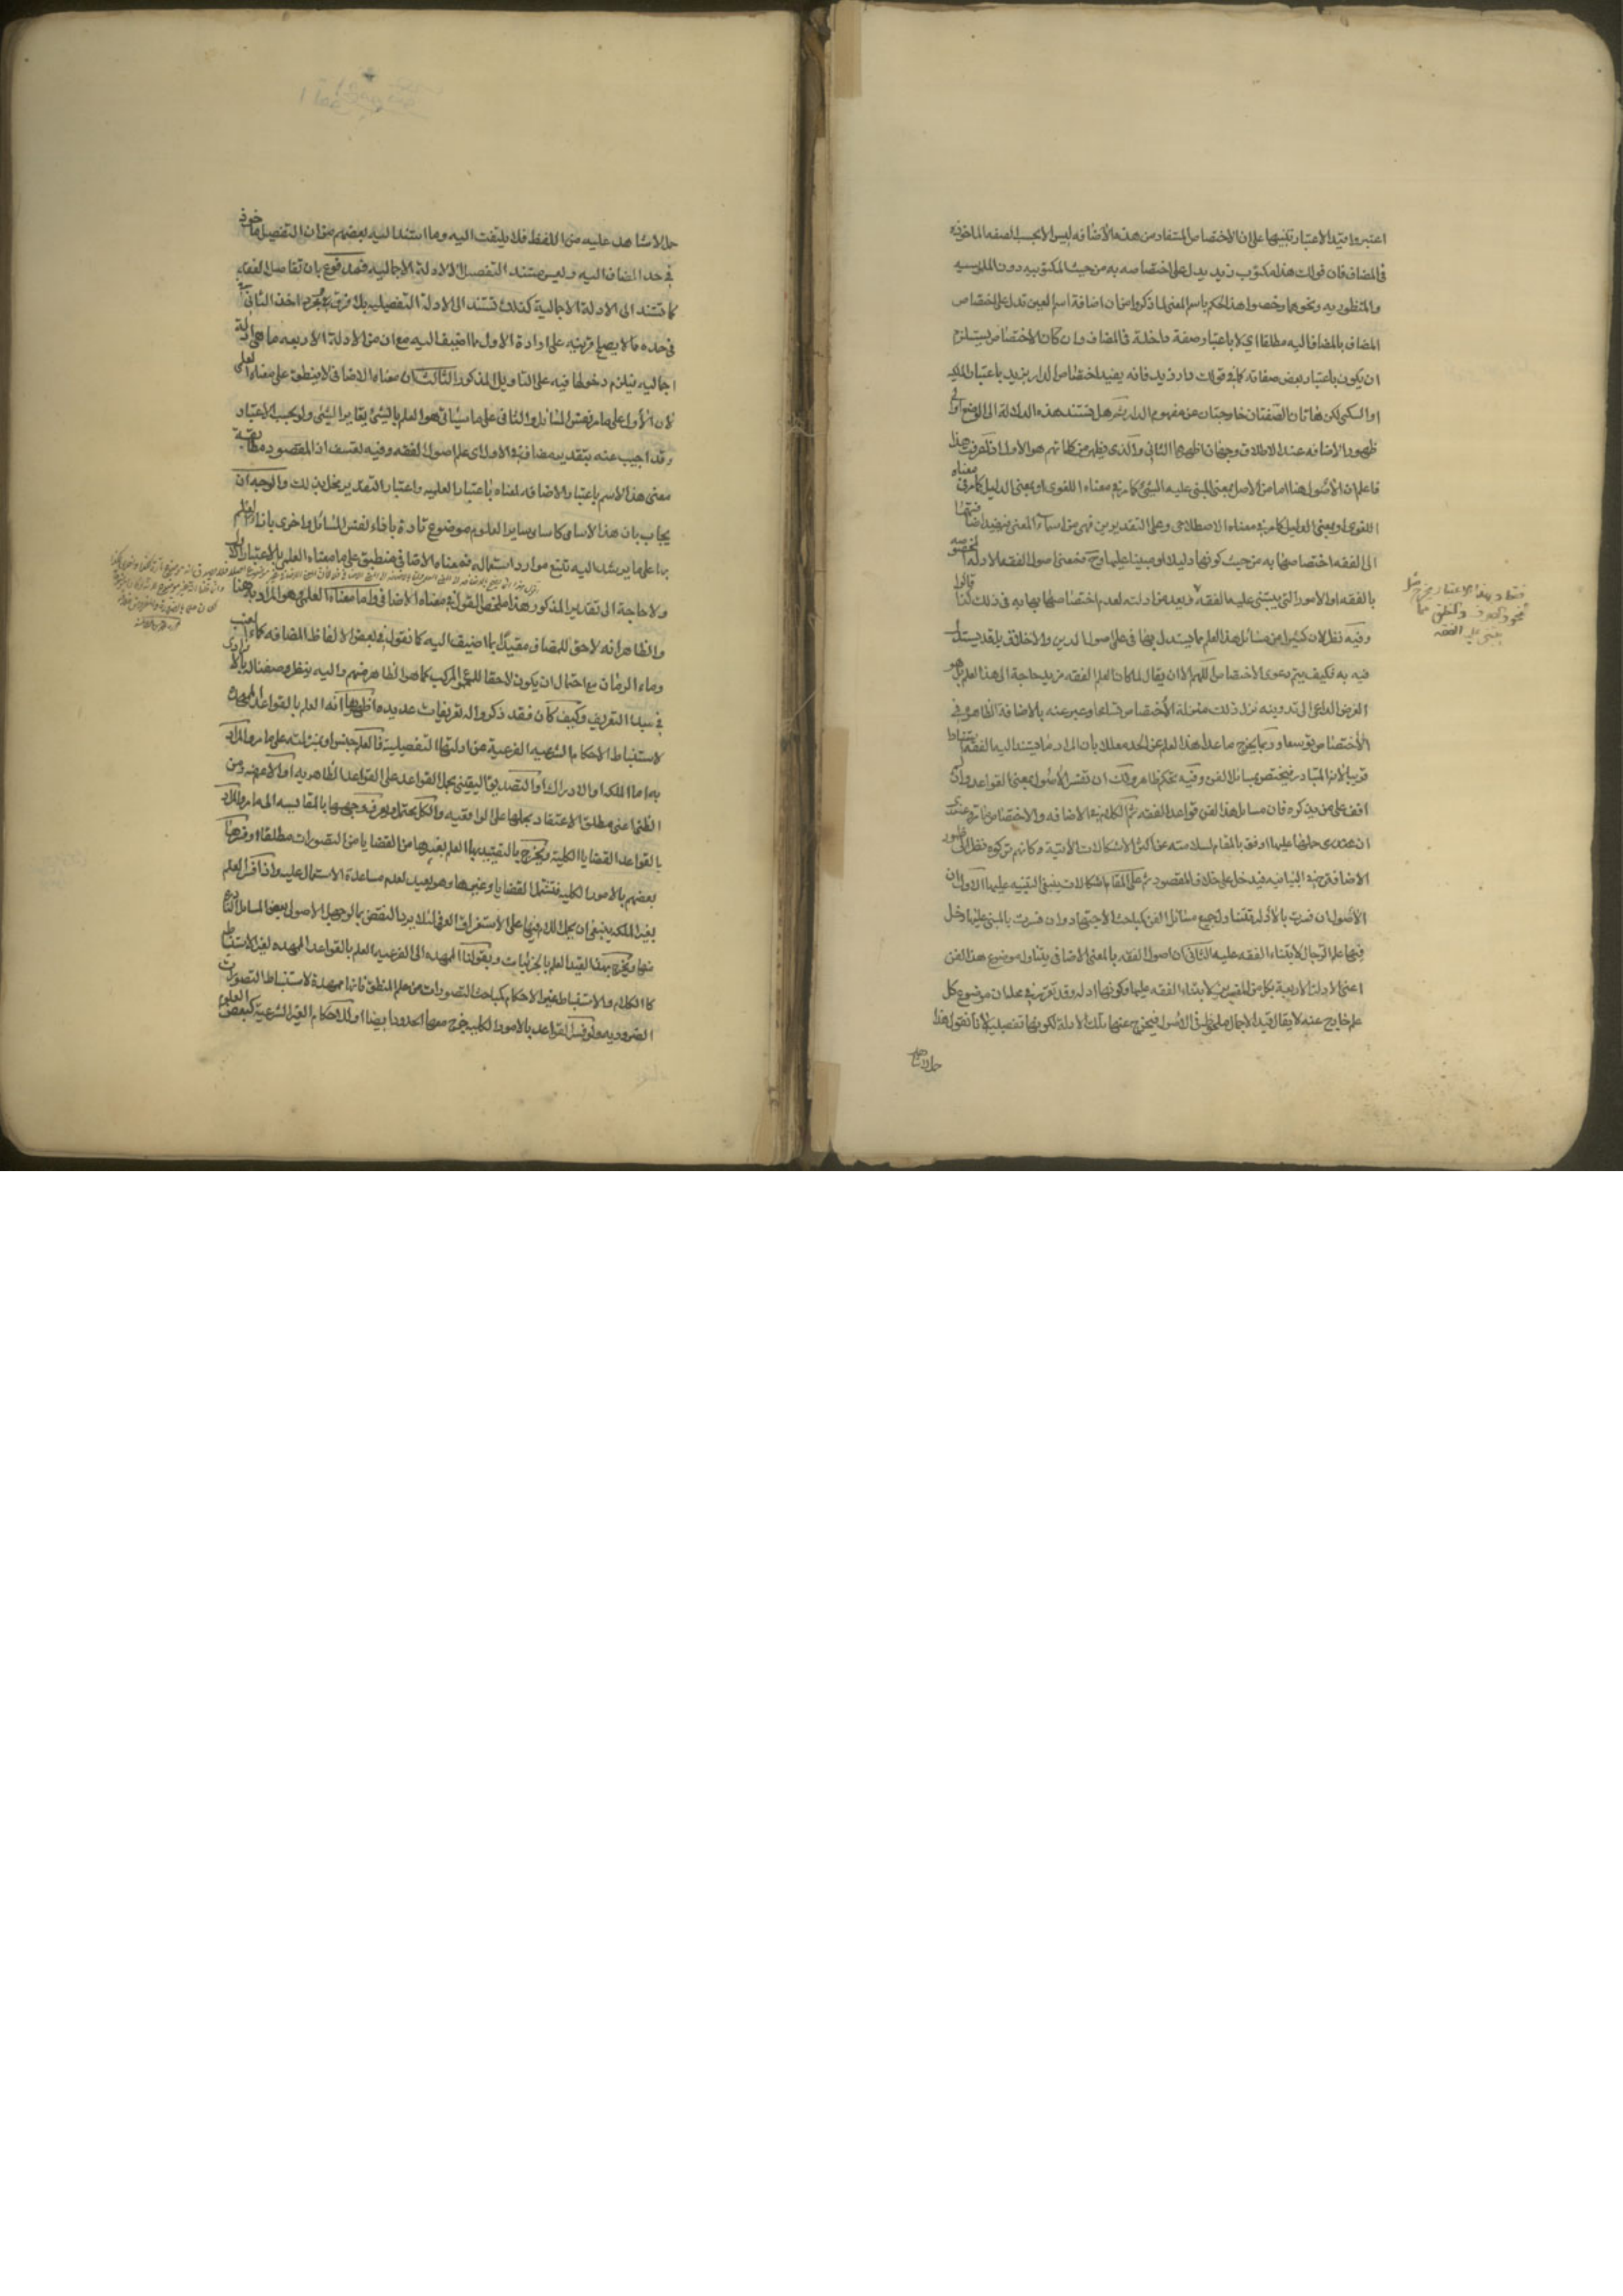 اعتبروا قيد الاعتبار تنبيها على ان الاختصاص المستفاد من هذه الاضافه ليس الا بحسب الصفه الماخوذه
فى المضاف فان قولك هذا مكتوب زيد يدل على اختصاصه به من حيث المكتوبيه دون الملبوسيه
والمنظوريه ونحوها وخصوا هذا الحكم باسم المعنى لما ذكروا من ان اضافة اسم العين تدل على اختصاص
المضاف بالمضاف اليه مطلقا اى لا باعتبار صفة داخلة فى المضاف وان كان الاختصاص يستلزم
ان يكون باعتبار بعض صفاته كما فى قولك دار زيد فانه يفيد اختصاص الدار بزيد باعتبار الملكيه
او السكنى لكن هاتان الصفتان خارجتان عن مفهوم الدار ثم هل تستند هذه الدلالة الى الوضع او الى
ظهور الاضافه عند الاطلاق وجهان اظهرهما الثانى والذى يظهر من كلماتهم هو الاول اذا عرفت هذا
فاعلم ان الاصول هنا اما من الاصل بمعنى المبنى عليه الشئ كما مر فى معناه اللغوى او بمعنى الدليل كما مر فى معناه
اللغوى او بمعنى الدليل كما مر فى معناه الاصطلاحى وعلى التقديرين فهى من اسماء المعنى فيفيد اضافتها
الى الفقه اختصاصها به من حيث كونها دليلا او مبينا عليها وح فمعنى اصول الفقه الادلة المخصوصه
بالفقه او الامور التى يبتنى عليها الفقه ويعد من ادلته لعدم اختصاصها بها به فى ذلك كذا قالوا
وفيه نظر لان كثيرا من مسائل هذا العلم مما يستدل بها فى علم اصول الدين والاخلاق بل قد يستدل
فيه به فكيف يتم دعوى الاختصاص اللهم الا ان يقال لما كان لعلم الفقه مزيد حاجة الى هذا العلم بل هو
الغرض الداعى الى تدوينه نزل ذلك منزلة الاختصاص تسامحا وعبر عنه بالاضافة الظاهرة فى
الاختصاص توسعا وربما يخرج ما عدا هذا العلم عن الحد معللا بان المراد ما يستند اليه الفقه استنادا
قريبا لانه المتبادر فيختص بمسائل الفن وفيه تحكم ظاهر ولك ان تفسر الاصول بمعنى القواعد وان لم
اقف على من يذكره فان مسائل هذا الفن قواعد الفقه ثم الكلام فى الاضافه والاختصاص ما مر وعندى
ان عندى حملها عليها اوفق بالمقام لسلامته عن اكثر الاشكالات الاتية وكانهم تركوه نظرا الى ظهور
الاضافة فى البيانيه فيدخل على خلاف المقصود ثم على المقام اشكالات ينبغى التنبيه عليها الاول ان
الاصول ان فسرت بالادلة تتناول جميع مسائل الفن كمباحث الاجتهاد وان فسرت بالمبنى عليها دخل
فيها علم الرجال لابتناء الفقه عليه الثانى ان اصول الفقه بالمعنى الاضافى يتناول موضوع هذا الفن
اعنى الادلة الاربعة بكل من المعنيين لابتناء الفقه عليها وكونها ادلة وقد تقرر فى محله ان موضوع كل
علم خارج عنه لا يقال قيد الاجمال ملحوظ فى الاصول فيخرج عنها تلك الادلة لكونها تفصيلية لانا نقول هذا
حمل لا شاهد
فقط وبهذا الاعتبار يخرج مثل
النحو والصرف والمنطق مما
يبتنى عليه الفقه
حمل لا شاهد عليه من اللفظ فلا يلتفت اليه وما استند اليه بعضهم من ان التفصيل ماخوذ
فى حد المضاف اليه وليس مستند التفصيل الا الادلة الاجماليه فمدفوع بان تفاصيل الفقه
كما تستند الى الادلة الاجمالية كذلك تستند الى الادلة التفصيليه بلا فرق ومجرد اخذ الثانى
فى حده مما لا يصلح قرينه على ارادة الاول مما اضيف اليه مع ان من الادلة الاربعه ما هى ادلة
اجماليه فيلزم دخولها فيه على التاويل المذكور الثالث ان معناه الاضافى لا ينطبق على معناه العلمى
لان الاول على ما مر نفس المسائل والثانى على ما سياتى هو العلم بها والعلم بالشئ يغاير الشئ ولو بحسب الاعتبار
وقد اجيب عنه بتقدير مضاف فى الاول اى علم اصول الفقه وفيه تعسف اذ المقصود مطابقة
معنى هذا الاسم باعتبار الاضافه لمعناه باعتبار العلميه واعتبار التقدير يخل بذلك والوجه ان
يجاب بان هذا الاسامى كاسامى ساير العلوم موضوع تارة بازاء نفس المسائل واخرى بازاء العلم
بها على ما يرشد اليه تتبع موارد استعماله فمعناه الاضافى منطبق على ما معناه العلمى بالاعتبار الاول
ولا حاجة الى تقدير المذكور هذا ملخص القول فى معناه الاضافى واما معناه العلمى وهو المراد به هنا
والظاهر انه لاحق للمضاف مقيدا بما اضيف اليه كما نقول فى بعض الالفاظ المضافه كماء العنب
وماء الرمان مع احتمال ان يكون لاحقا للمجموع المركب كما هو الظاهر منهم واليه ينظر وصفنا له بالافرادى
فى مبدا التعريف وكيف كان فقد ذكروا له تعريفات عديده اظهرها انه العلم بالقواعد الممهدة
لاستنباط الاحكام الشرعيه الفرعية عن ادلتها التفصيلية فالعلم جنس او بمنزلته على ما مر والمراد
به اما الملكة او الادراك او التصديق اليقينى بحمل القواعد على القواعد الظاهريه او الاعم منه ومن
الظن اعنى مطلق الاعتقاد بحملها على الواقعيه والكل محتمل ويعرف وجهها بالمقايسه الى ما مر والمراد
بالقواعد القضايا الكلية ويخرج بالتقييد بها العلم بغيرها من القضايا من التصورات مطلقا وفسرها
بعضهم بالامور الكليه فتشمل القضايا وغيرها وهو بعيد لعدم مساعدة الاستعمال عليه واذا فسر العلم
بغير الملكه ينبغى ان يحمل اللام فيها على الاستغراق العرفى لئلا يرد النقض بمن جهل الاصول ببعض المسائل النادرة
منها ويخرج بهذا القيد العلم بالجزئيات وبقولنا الممهده الى الفرعيه العلم بالقواعد الممهده لغير الاستنباط
كالكلام والاستنباط غير الاحكام كمباحث التصورات من علم المنطق فانها ممهدة لاستنباط التصورات
الضروريه ولو فسر القواعد بالامور الكليه يخرج معها الحدود ايضا او الاحكام الغير الشرعية كبعض العلوم